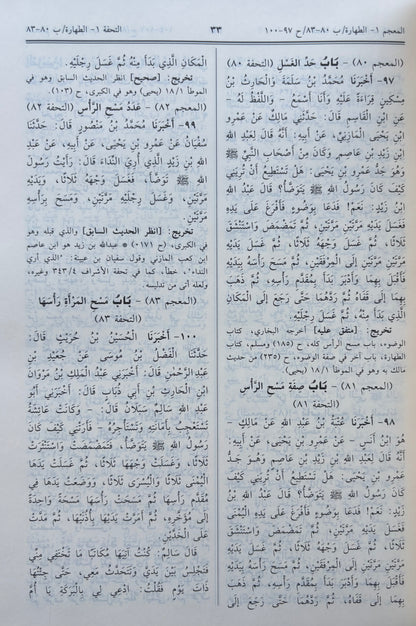 المعجم ١- الطهارة/ ب ٨٠-٨٣/ح ٩٧-١٠٠
٣٣
التحفة ١- الطهارة/ ب ٨٠-٨٣
(المعجم ٨٠) - بَابُ حَدِّ الغَسْلِ (التحفة ٨٠)
٩٧- أَخْبَرَنَا مُحَمَّدُ بْنُ سَلَمَةَ وَالْحَارِثُ بْنُ
مِسْكِينٍ قِرَاءَةً عَلَيْهِ وَأَنَا أَسْمَعُ - وَاللَّفْظُ لَهُ -
عَنِ ابْنِ الْقَاسِمِ قَالَ: حَدَّثَنِي مَالِكٌ عَنْ عَمْرِو
ابْنِ يَحْيَى الْمَازِنِيِّ، عَنْ أَبِيهِ: أَنَّهُ قَالَ لِعَبْدِ اللهِ
ابْنِ زَيْدِ بْنِ عَاصِمٍ وَكَانَ مِنْ أَصْحَابِ النَّبِيِّ ﷺ
وَهُوَ جَدُّ عَمْرِو بْنِ يَحْيَى: هَلْ تَسْتَطِيعُ أَنْ تُرِيَنِي
كَيْفَ كَانَ رَسُولُ اللهِ ﷺ يَتَوَضَّأُ؟ قَالَ عَبْدُ اللهِ
ابْنُ زَيْدٍ: نَعَمْ! فَدَعَا بِوَضُوءٍ فَأَفْرَغَ عَلَى يَدَيْهِ
فَغَسَلَ يَدَيْهِ مَرَّتَيْنِ مَرَّتَيْنِ، ثُمَّ تَمَضْمَضَ وَاسْتَنْشَقَ
ثَلَاثًا، ثُمَّ غَسَلَ وَجْهَهُ ثَلَاثًا، ثُمَّ غَسَلَ يَدَيْهِ
مَرَّتَيْنِ مَرَّتَيْنِ إِلَى الْمِرْفَقَيْنِ، ثُمَّ مَسَحَ رَأْسَهُ بِيَدَيْهِ
فَأَقْبَلَ بِهِمَا وَأَدْبَرَ، بَدَأَ بِمُقَدَّمِ رَأْسِهِ، ثُمَّ ذَهَبَ
بِهِمَا إِلَى قَفَاهُ ثُمَّ رَدَّهُمَا حَتَّى رَجَعَ إِلَى الْمَكَانِ
الَّذِي بَدَأَ مِنْهُ، ثُمَّ غَسَلَ رِجْلَيْهِ.
تخريج: [متفق عليه] أخرجه البخاري، كتاب
الوضوء، باب مسح الرأس كله، ح (١٨٥) ومسلم، كتاب
الطهارة، باب آخر في صفة الوضوء، ح (٢٣٥) من حديث
مالك به، وهو في الموطأ ١٨/١ (يحيى).
(المعجم ٨١) - بَابُ صِفَةِ مَسْحِ الرَّأْسِ
(التحفة ٨١)
٩٨- أَخْبَرَنَا عُتْبَةُ بْنُ عَبْدِ اللهِ عَنْ مَالِكٍ -
هُوَ ابْنُ أَنَسٍ - عَنْ عَمْرِو بْنِ يَحْيَى، عَنْ أَبِيهِ:
أَنَّهُ قَالَ لِعَبْدِ اللهِ بْنِ زَيْدِ بْنِ عَاصِمٍ وَهُوَ جَدُّ
عَمْرِو بْنِ يَحْيَى: هَلْ تَسْتَطِيعُ أَنْ تُرِيَنِي كَيْفَ
كَانَ رَسُولُ اللهِ ﷺ يَتَوَضَّأُ؟ قَالَ عَبْدُ اللهِ بْنُ
زَيْدٍ: نَعَمْ! فَدَعَا بِوَضُوءٍ فَأَفْرَغَ عَلَى يَدِهِ الْيُمْنَى
فَغَسَلَ يَدَيْهِ مَرَّتَيْنِ، ثُمَّ تَمَضْمَضَ وَاسْتَنْشَقَ
ثَلَاثًا، ثُمَّ غَسَلَ وَجْهَهُ ثَلَاثًا، ثُمَّ غَسَلَ يَدَيْهِ
مَرَّتَيْنِ مَرَّتَيْنِ إِلَى الْمِرْفَقَيْنِ، ثُمَّ مَسَحَ رَأْسَهُ بِيَدَيْهِ
فَأَقْبَلَ بِهِمَا وَأَدْبَرَ بَدَأَ بِمُقَدَّمِ رَأْسِهِ، ثُمَّ ذَهَبَ
بِهِمَا إِلَى قَفَاهُ، ثُمَّ رَدَّهُمَا حَتَّى رَجَعَ إِلَى
الْمَكَانِ الَّذِي بَدَأَ مِنْهُ ثُمَّ غَسَلَ رِجْلَيْهِ.
تخريج: [صحيح] انظر الحديث السابق وهو في
الموطأ ١٨/١ (يحيى) وهو في الكبرى، ح (١٠٣)
(المعجم ٨٢) - عَدَدُ مَسْحِ الرَّأْسِ (التحفة ٨٢)
٩٩- أَخْبَرَنَا مُحَمَّدُ بْنُ مَنْصُورٍ قَالَ: حَدَّثَنَا
سُفْيَانُ عَنْ عَمْرِو بْنِ يَحْيَى، عَنْ أَبِيهِ، عَنْ عَبْدِ
اللهِ بْنِ زَيْدٍ الَّذِي أُرِيَ النِّدَاءَ، قَالَ: رَأَيْتُ رَسُولَ
اللهِ ﷺ تَوَضَّأَ، فَغَسَلَ وَجْهَهُ ثَلَاثًا، وَيَدَيْهِ
مَرَّتَيْنِ، وَغَسَلَ رِجْلَيْهِ مَرَّتَيْنِ، وَمَسَحَ بِرَأْسِهِ
مَرَّتَيْنِ.
تخريج: [انظر الحديث السابق] والذي قبله وهو
في الكبرى، ح (١٧١٥) * عبدالله بن زيد هو ابن عاصم
ابن كعب المازني وقول سفيان بن عيينة: "الذي أري
النداء"، خطأ، كما في تحفة الأشراف ٣٤٣/٤ وغيره،
ولعله أتى من تدليسه.
(المعجم ٨٣) - بَابُ مَسْحِ الْمَرْأَةِ رَأْسَهَا
(التحفة ٨٣)
١٠٠- أَخْبَرَنَا الْحُسَيْنُ بْنُ حُرَيْثٍ قَالَ:
حَدَّثَنَا الْفَضْلُ بْنُ مُوسَى عَنْ جُعَيْدِ بْنِ
عَبْدِ الرَّحْمٰنِ قَالَ: أَخْبَرَنِي عَبْدُ الْمَلِكِ بْنُ مَرْوَانَ
ابْنِ الْحَارِثِ بْنِ أَبِي ذُبَابٍ قَالَ: أَخْبَرَنِي أَبُو
عَبْدِ اللهِ سَالِمٌ سَبَلَانُ قَالَ: - وَكَانَتْ عَائِشَةُ
تَسْتَعْجِبُ بِأَمَانَتِهِ وَتَسْتَأْجِرُهُ - فَأَرَتْنِي كَيْفَ كَانَ
رَسُولُ اللهِ ﷺ يَتَوَضَّأُ، فَتَمَضْمَضَتْ وَاسْتَنْثَرَتْ
ثَلَاثًا، وَغَسَلَتْ وَجْهَهَا ثَلَاثًا، ثُمَّ غَسَلَتْ يَدَهَا
الْيُمْنَى ثَلَاثًا وَالْيُسْرَى ثَلَاثًا، وَوَضَعَتْ يَدَهَا فِي
مُقَدَّمِ رَأْسِهَا ثُمَّ مَسَحَتْ رَأْسَهَا مَسْحَةً وَاحِدَةً
إِلَى مُؤَخَّرِهِ، ثُمَّ أَمَرَّتْ يَدَيْهَا بِأُذُنَيْهَا، ثُمَّ مَدَّتْ
عَلَى الْخَدَّيْنِ.
قَالَ سَالِمٌ: كُنْتُ آتِيهَا مُكَاتَبًا مَا تَخْتَفِي مِنِّي
فَتَجْلِسُ بَيْنَ يَدَيَّ وَتَتَحَدَّثُ مَعِي، حَتَّى جِئْتُهَا
ذَاتَ يَوْمٍ فَقُلْتُ: ادْعِي لِي بِالْبَرَكَةِ يَا أُمَّ